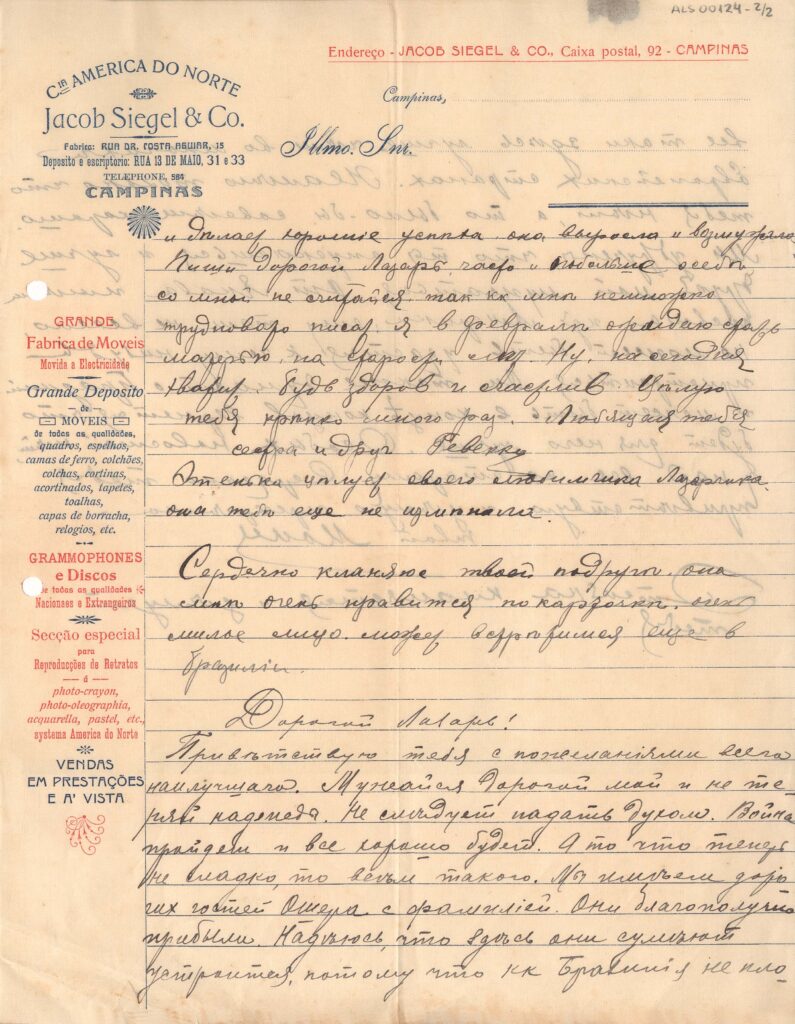 ALS 00124 - 2/2
Endereço - JACOB SIEGEL & CO., Caixa postal, 92 - CAMPINAS
Cia AMERICA DO NORTE
Jacob Siegel & Co.
Fabrica: RUA DR. COSTA AGUIAR, 15
Deposito e escriptorio: RUA 13 DE MAIO, 31 e 33
TELEPHONE, 584
CAMPINAS
Campinas,
Illmo. Snr.
GRANDE
Fabrica de Moveis
Movida a Electricidade
Grande Deposito
de
MOVEIS
de todas as qualidades,
quadros, espelhos,
camas de ferro, colchões,
colchas, cortinas,
acortinados, tapetes,
toalhas,
capas de borracha,
relogios, etc.
GRAMMOPHONES
e Discos
de todas as qualidades
Nacionaes e Extrangeiros
Secção especial
para
Reproducções de Retratos
á
photo-crayon,
photo-oleographia,
acquarella, pastel, etc.,
systema America do Norte
VENDAS
EM PRESTAÇÕES
E A' VISTA
и дѣлает хорошіе успѣхи, она выросла и возмужала
Пиши дорогой Лазарь, часто и побольше о себѣ
со мной не считайся, так кк мнѣ немножко
трудновато писат, я в февралѣ ожидаю стать
матерью, на старость лѣт. Ну, на сегодня
хватит. Будь здоров и счастлив Цѣлую
тебя крѣпко много раз. Любящая тебя
сестра и друг Ревекка
Этенька цѣлует своего любимчика Лазарчика
она тебѣ еще не измѣнила.
Сердечно кланяюс твоей подругѣ. она
мнѣ очень нравится по карточкѣ. очень
милое лицо. может встрѣтимся еще в
Бразиліи.
Дорогой Лазарь!
Привѣтствую тебя с пожеланіями всего
наилучшаго. Мужайся дорогой мой и не те-
ряй надежда. Не слѣдует падать духом. Война
пройдет и все хорошо будет. А то что теперь
не сладко, то всѣм такого. Мы имѣем доро-
гих гостей Ошера с фамиліей. Они благополучно
прибыли. Надѣюсь, что здѣсь они сумѣют
устроится, потому что кк Бразилія не пло-